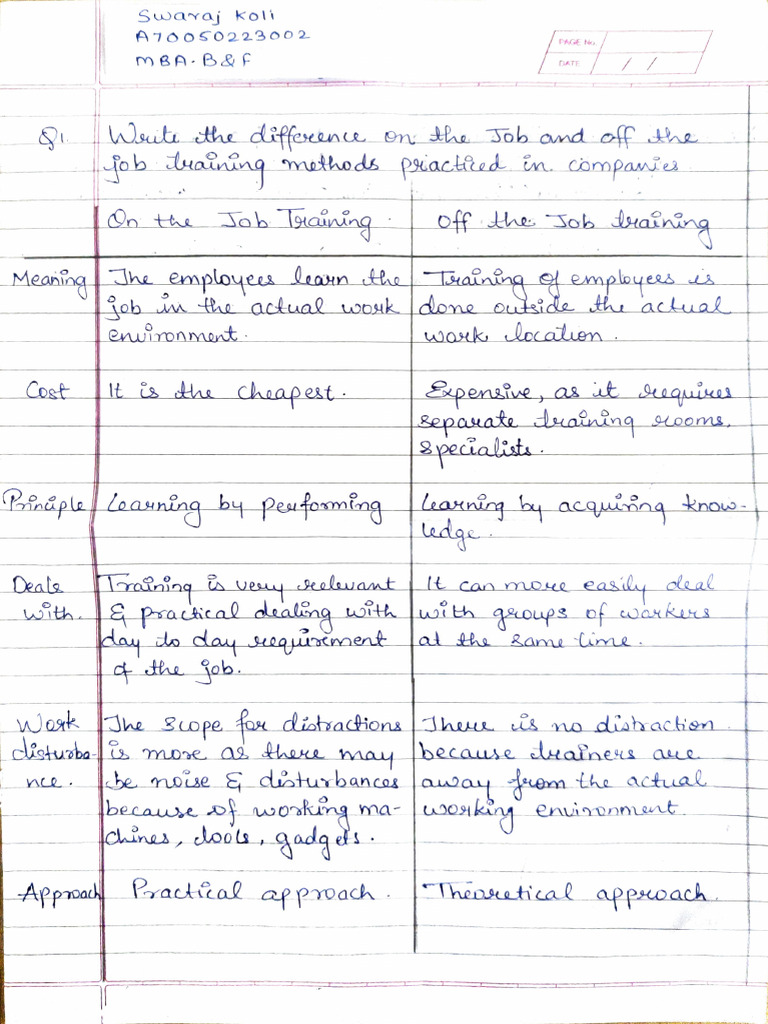 Swaraj Koli
A70050223002
MBA-B&F
PAGE No.
DATE / /
Q1. Write the difference on the Job and off the
job training methods practiced in companies
On the Job Training. Off the Job training
Meaning The employees learn the Training of employees is
job in the actual work done outside the actual
environment. work location.
Cost It is the cheapest. Expensive, as it requires
separate training rooms,
specialists.
Principle Learning by performing Learning by acquiring know-
ledge.
Deals Training is very relevant It can more easily deal
with. & practical dealing with with groups of workers
day to day requirement at the same time.
of the job.
Work The scope for distractions There is no distraction
disturba- is more as there may because trainers are
nce. be noise & disturbances away from the actual
because of working ma- working environment.
chines, tools, gadgets.
Approach Practical approach. Theoretical approach.